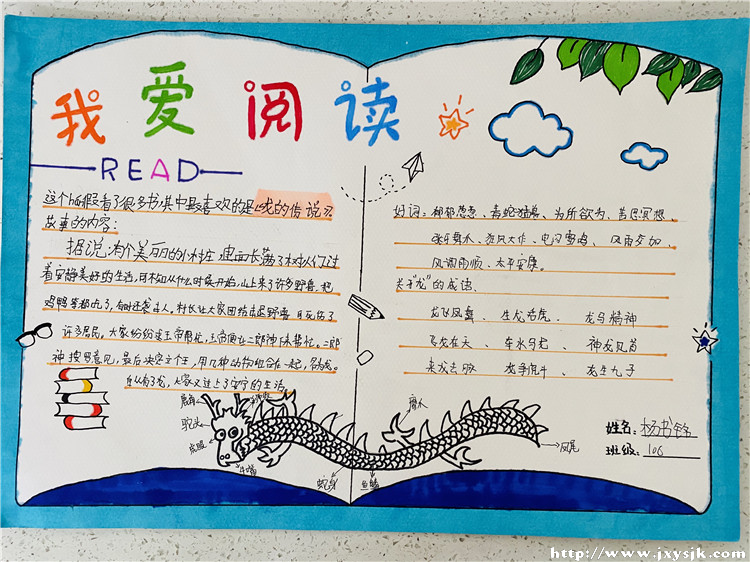 我爱阅读
READ
这个假看了很多书,其中最喜欢的是《龙的传说》
故事的内容:
据说,有个美丽的小村庄,里面长满了树,人们过
着安静美好的生活,可不知从什么时候开始,山上来了许多野兽,把
鸡鸭等都吃了,有时还袭击人。村长让大家团结击退野兽,
许多居民,大家纷纷求玉帝帮忙,玉帝派二郎神下来帮忙。二郎
神按照意见,最后决定六个王,用几种动物组合在一起,名为龙。
自从有了龙,大家又过上了安宁的生活。
鹿角
驼头
虎眼
蛇身
鱼鳞
鹰爪
凤尾
好词:郁郁葱葱、毒蛇猛兽、为所欲为、苦思冥想、
张牙舞爪、狂风大作、电闪雷鸣、风雨交加、
风调雨顺、太平安康。
关于“龙”的成语:
龙飞凤舞、生龙活虎、龙马精神
飞龙在天、车水马龙、神龙见首
来龙去脉、龙争虎斗、龙生九子
姓名:杨书
班级:106
http://www.jxysjk.com